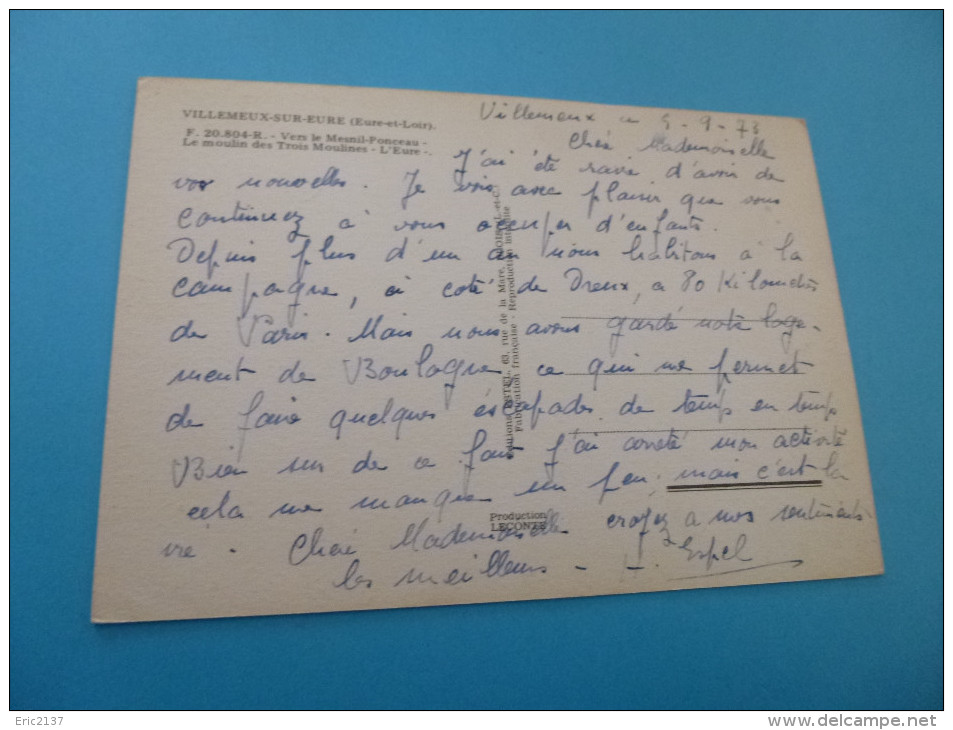 VILLEMEUX-SUR-EURE (Eure-et-Loir).
F. 20.804-R. - Vers le Mesnil-Ponceau -
Le moulin des Trois Moulines - L'Eure -.
Villemeux 9-73
Chère Mademoiselle
J'ai été ravie d'avoir de
vos nouvelles. Je vois avec plaisir que vous
continuez à vous occuper d'enfants.
Depuis plus d'un an nous habitons à la
campagne, à coté de Dreux, à 80 Kilomètres
de Paris. Mais nous avons gardé notre loge-
ment de Boulogne ce qui me permet
de faire quelques escapades de temps en temps
Bien sur de ce fait j'ai arrêté mon activité
cela me manque un peu, mais c'est la
vie. Chère Mademoiselle croyez à nos sentiments
les meilleurs - H. Espel
63, rue de la Mare,
Fabrication française - Reproduction interdite
Production
LECONTE
Eric2137
delcampe.net